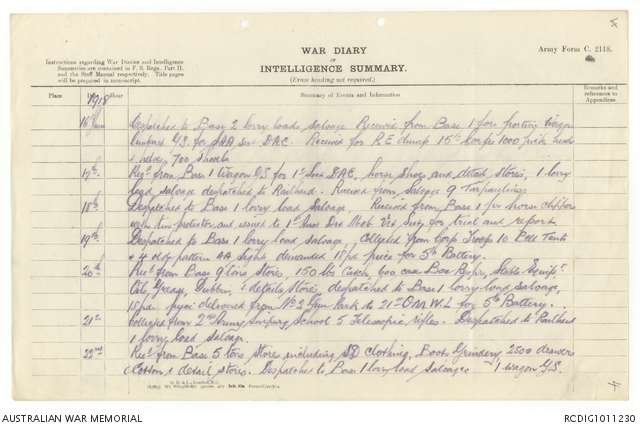 WAR DIARY
OR
INTELLIGENCE SUMMARY.
(Erase heading not required.)
Army Form C. 2118.
Instructions regarding War Diaries and Intelligence
Summaries are contained in F. S. Regs., Part II.
and the Staff Manual respectively. Title pages
will be prepared in manuscript.
Place Date Hour Summary of Events and Information Remarks and
references to
Appendices
1918
16 June Despatched to Base 2 lorry loads salvage Received from Base 1 fore portion Wagon
Limbered G.S. for SAA Sec DAC. Received for R.E. dump 15 1000 pick heads
700 shovels
17th Rec'd from Base 1 Wagon GS for 1st Aus DAC, horse shoes and detail stores, 1 lorry
load salvage despatched to Railhead. Received from Salvage 9 Tarpaulins
18th Despatched to Base 1 lorry load Salvage, Received from Base 1 pr horse clippers
with protector and issued to 1st Aus Div Mob Vet Sec for trial and report
19th Despatched to Base 1 lorry load salvage, Collected from Corps Troops 10 Bell Tents
4 old pattern AA Sights demanded 18 pdr piece for 5th Battery.
20th Rec'd from Base 9 tons Stores, 150 lbs 400 case Box Repr, Stable Equip't
Oils, Grease, Dubbin, & details stores, despatched to Base 1 lorry load salvage,
18 pdr delivered from No 2 Gun Park to 21st O.M.W.L for 5th Battery.
21st Collected from 2nd Army Sniping School 5 Telescopic rifles. Despatched to Railhead
1 lorry load salvage.
22nd Rec'd from Base 5 tons Stores including SD Clothing, Boots Grindery 2500 drawers
Cotton & detail stores. Despatched to Base 1 lorry load salvage 1 wagon G.S.
4
AUSTRALIAN WAR MEMORIAL
RCDIG1011230